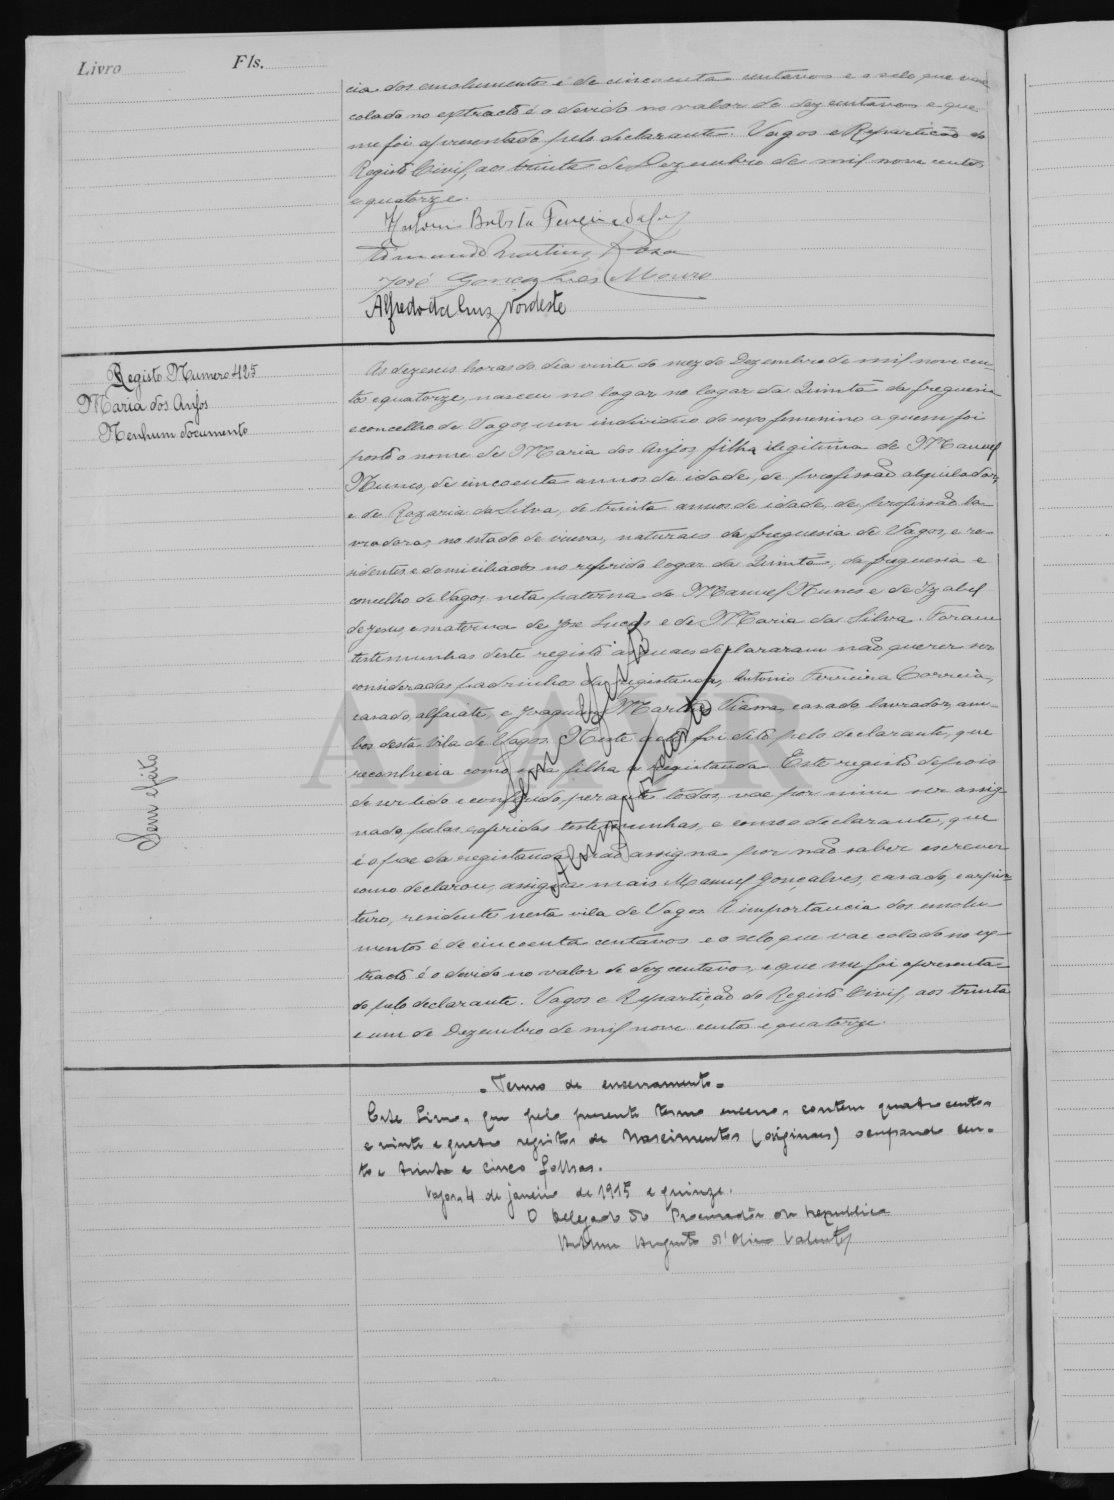 Livro
Fls.
cia dos emolumentos é de cincoenta centavos e o selo, que vae
colado no extracto é o devido no valor de dez centavos e que
me foi apresentado pelo declarante. Vagos e Repartição do
Registo Civil, aos trinta de Dezembro de mil nove centos
e quatorze.
Antonio Batista Ferreira da
Armando Martins Rosa
José Gonçalves Mouro
Alfredo da Cruz Nordeste
Registo Numero 425
Maria dos Anjos
Nenhum documento
Sem efeito
As dezeseis horas do dia vinte do mez de Dezembro de mil nove cen-
tos e quatorze, nasceu no logar no logar da Quintã da freguesia
e concelho de Vagos, um individuo do sexo femenino a quem foi
posto o nome de Maria dos Anjos, filha ilegitima de Manuel
Nunes, de cincoenta annos de idade, de profissão alquilador,
e de Rozaria da Silva, de trinta annos de idade, de profissão la-
vradora, no estado de viuva, naturaes da freguesia de Vagos, e re-
sidentes e domiciliados no referido logar da Quintã, da freguesia e
concelho de Vagos, neta paterna de Manuel Nunes e de Izabel
de Jesus, e materna de José Lucas e de Maria da Silva. Foram
testemunhas deste registo as quaes declararam não querer ser
consideradas padrinhos da registanda, Antonio Ferreira Correia,
casado, alfaiate, e Joaquim Martins Viana, casado, lavrador, am-
bos desta vila de Vagos. Neste acto foi dito, pelo declarante, que
reconhecia como sua filha a registanda. Este registo depois
de ser lido e conferido perante todos, vae por mim ser assig-
nado, pelas referidas testemunhas, e como o declarante, que
é o pae da registanda não assigna por não saber escrever
como declarou, assigna mais Manuel Gonçalves, casado, carpin-
teiro, residente nesta vila de Vagos. A importancia dos emolu-
mentos é de cincoenta centavos e o selo, que vae colado no ex-
tracto é o devido no valor de dez centavos, e que me foi apresenta-
do pelo declarante. Vagos e Repartição do Registo Civil, aos trinta
e um de Dezembro de mil nove centos e quatorze.
Sem efeito
Cruz Nordeste
ADAVR
Termo de encerramento
Este Livro, que pelo presente termo encerro, contem quatrocentos
e vinte e quatro registos de Nascimentos (originaes) ocupando cen-
to e trinta e cinco folhas.
Vagos, 4 de janeiro de 1915 e quinze.
O Delegado do Procurador da Republica
Augusto d'Oliva Valente